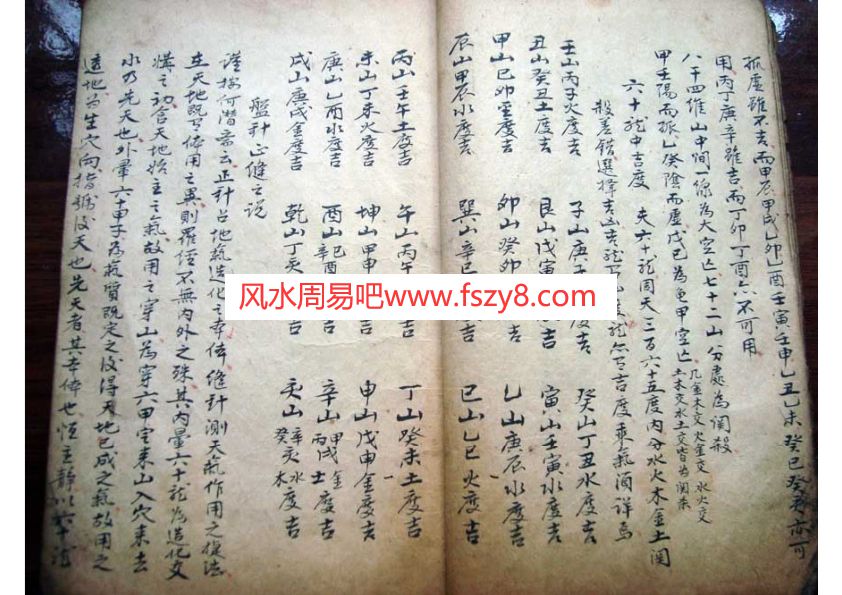 孤虛雖不吉而甲辰甲戌乙卯乙酉壬寅壬申乙丑乙未癸巳癸亥亦可
用丙丁庚辛雖吉而丁卯丁酉六不可用
八干四維山中間一線為大空亡七十二山分處為関殺
甲壬陽而孤乙癸陰而虛戊己為龟甲空亡
凡金木交火金交水火交
土木交水土交皆為関煞
六十龍中吉度 夫六十龍周天三百六十五度內分水火木金土関
殺差錯選擇
壬山丙子火度吉
子山庚子
癸山丁丑水度吉
丑山癸丑土度吉
艮山戊寅
寅山壬寅水度吉
甲山己卯土度吉
卯山癸卯
乙山庚辰水度吉
辰山甲辰水度吉
巽山辛巳
巳山乙巳火度吉
丙山壬午土度吉
午山丙午
丁山癸未土度吉
未山丁未火度吉
坤山甲申
申山戊申金度吉
庚山乙酉水度吉
酉山己酉 辛酉
辛山甲戌金 丙戌土度吉
戌山庚戌金度吉
乾山丁亥
亥山辛亥水 癸亥木度吉
盤針正縫之說
謹按何潛齋云正針占地氣造化之本体縫針測天氣作用之徒法
在天地既有体用之異則羅經不無內外之殊其內暈六十龍為造化交
媾之初含天地始主之氣故用之穿山為穿六甲定來山入穴來去
水乃先天也外暈六十甲子為氣質既定之後得天地已成之氣故用之
透地為生穴向指歸後天也先天者其本体也恒主靜以六十龍
风水周易吧www.fszy8.com